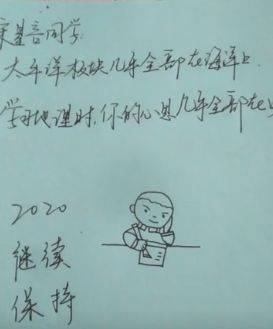 善音同学
太平洋板块几乎全部在海洋上.
学习地理时,你的心思几乎全部在
2020
继续
保持